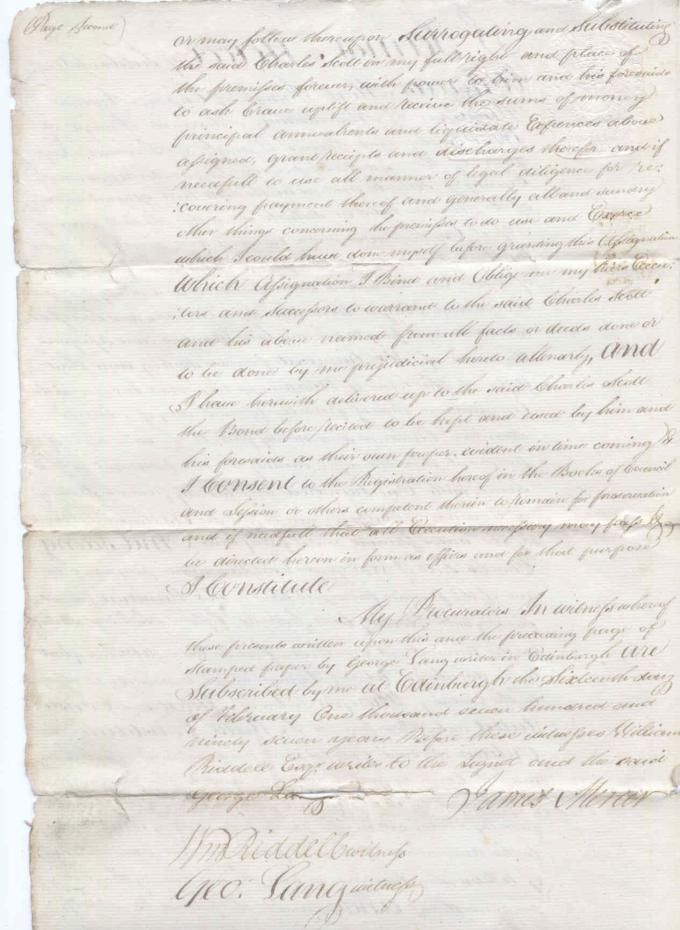 (Page Second)
or may follow thereupon Surrogating and Substituting
the said Charles Scott in my full right and place of
the premisses forever with power to him and his foresaids
to ask Crave uplift and receive the sums of money
principal annualrents and liquidate Expences above
assigned, grant receipts and discharges therefor and if
needfull to use all manner of legal diligence for re:
:covering payment thereof and generally all and sundry
other things concerning the premisses to do use and Exerce
which I could have done myself before granting this Assignation
Which Assignation I Bind and Oblige me my heirs Execu:
:tors and Successors to warrant to the said Charles Scott
and his above named from all facts or deeds done or
to be done by me prejudicial hereto allenarly, And
I have herewith delivered up to the said Charles Scott
the Bond before recited to be kept and used by him and
his foresaids as their own proper evident in time coming &
I Consent to the Registration hereof in the Books of Council
and Session or others competent therein to remain for preservation
and if needfull that all Execution necessary may pass &
be directed hereon in form as effeirs and for that purpose
I Constitute
My Procurators In witness whereof
these presents written upon this and the preceding page of
Stamped paper by George Lang writer in Edinburgh are
Subscribed by me at Edinburgh the Sixteenth day
of February One thousand seven hundred and
ninety seven years Before these witnesses William
Riddell Esqr. writer to the Signet and the said
George Lang
James Mercer
Wm Riddell witness
Geo: Lang witness